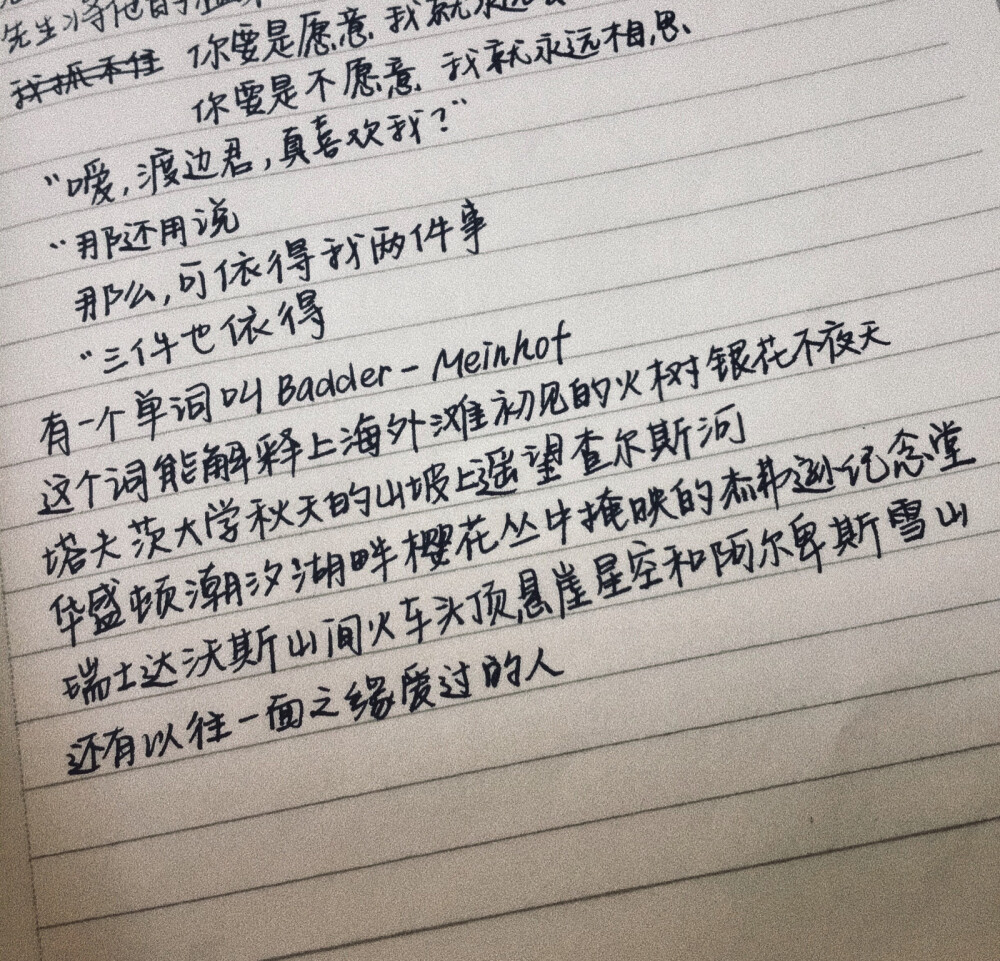 先生将他的
我抓不住 你要是愿意 我就永远
你要是不愿意 我就永远相思、
“嗳,渡边君,真喜欢我?”
“那还用说
那么,可依得我两件事
“三件也依得
有一个单词叫 Badder-Meinhof
这个词能解释上海外滩初见的火树银花不夜天
塔夫茨大学秋天的山坡上遥望查尔斯河
华盛顿潮汐湖畔樱花丛中掩映的杰弗逊纪念堂
瑞士达沃斯山间火车头顶,悬崖星空和阿尔卑斯雪山
还有以往一面之缘爱过的人